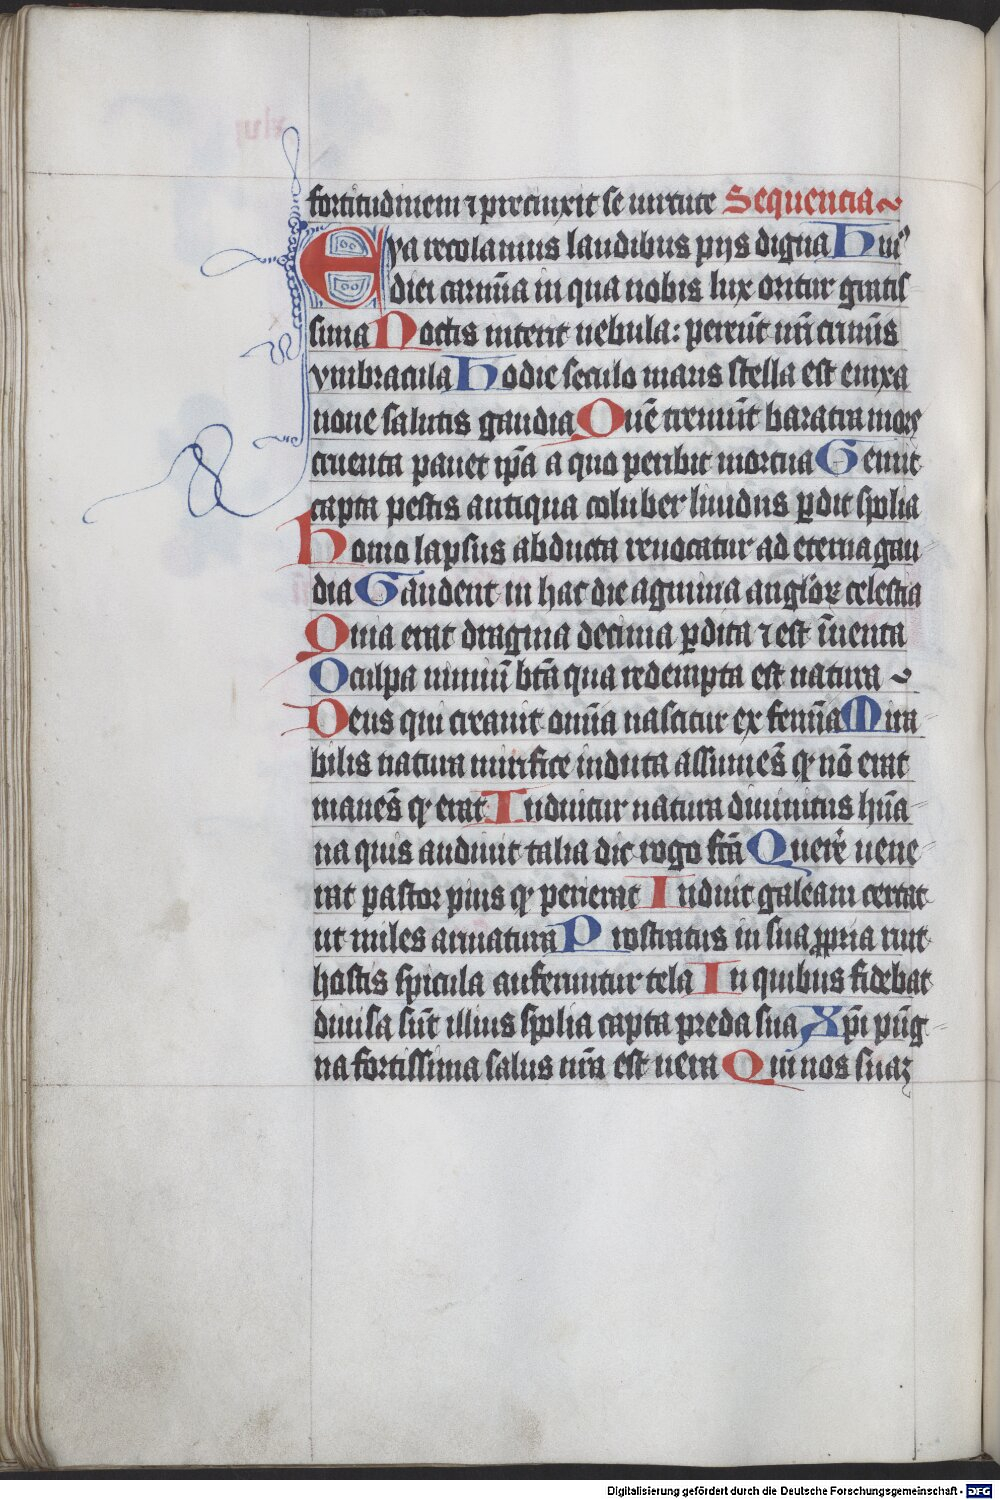 fortitudinem ⁊ precinxit se uirtute Sequencia
Eya recolamus laudibus pijs digna Hui⁹
diei carmīa in qua nobis lux oritur gratis
sima Noctis interit nebula: pereūt nr̄i crimīs
vmbracula Hodie seculo maris stella est enixa
noue salutis gaudia Quē tremūt baratra mors
cruenta pauet ip̄a a quo peribit mortua Gemit
capta pestis antiqua coluber liuidus ꝑdit spolia
Homo lapsus abducta reuocatur ad eterna gau
dia Gaudent in hac die agmina anglőꝝ celestia
Quia erat dragma decima ꝑdita ⁊ est īuenta
O culpa nimiū btā qua redempta est natura
Deus qui creauit omīa nascitur ex femīa Mira
bilis natura mirifice induta assumēs qͥ nō erat
manēs qͥ erat Induitur natura diuinitus hūa
na quis audiuit talia dic rogo fcā Querē uene
rat pastor pius qͥ perierat Induit galeam certat
ut miles armatura Prostratus in sua ꝓpria ruit
hostis spicula auferuntur tela In quibus fidebat
diuisa sūt illius spolia capta preda sua Xp̄i pūg
na fortissima salus nr̄a est uera Qui nos suaꝫ
Digitalisierung gefördert durch die Deutsche Forschungsgemeinschaft - DFG